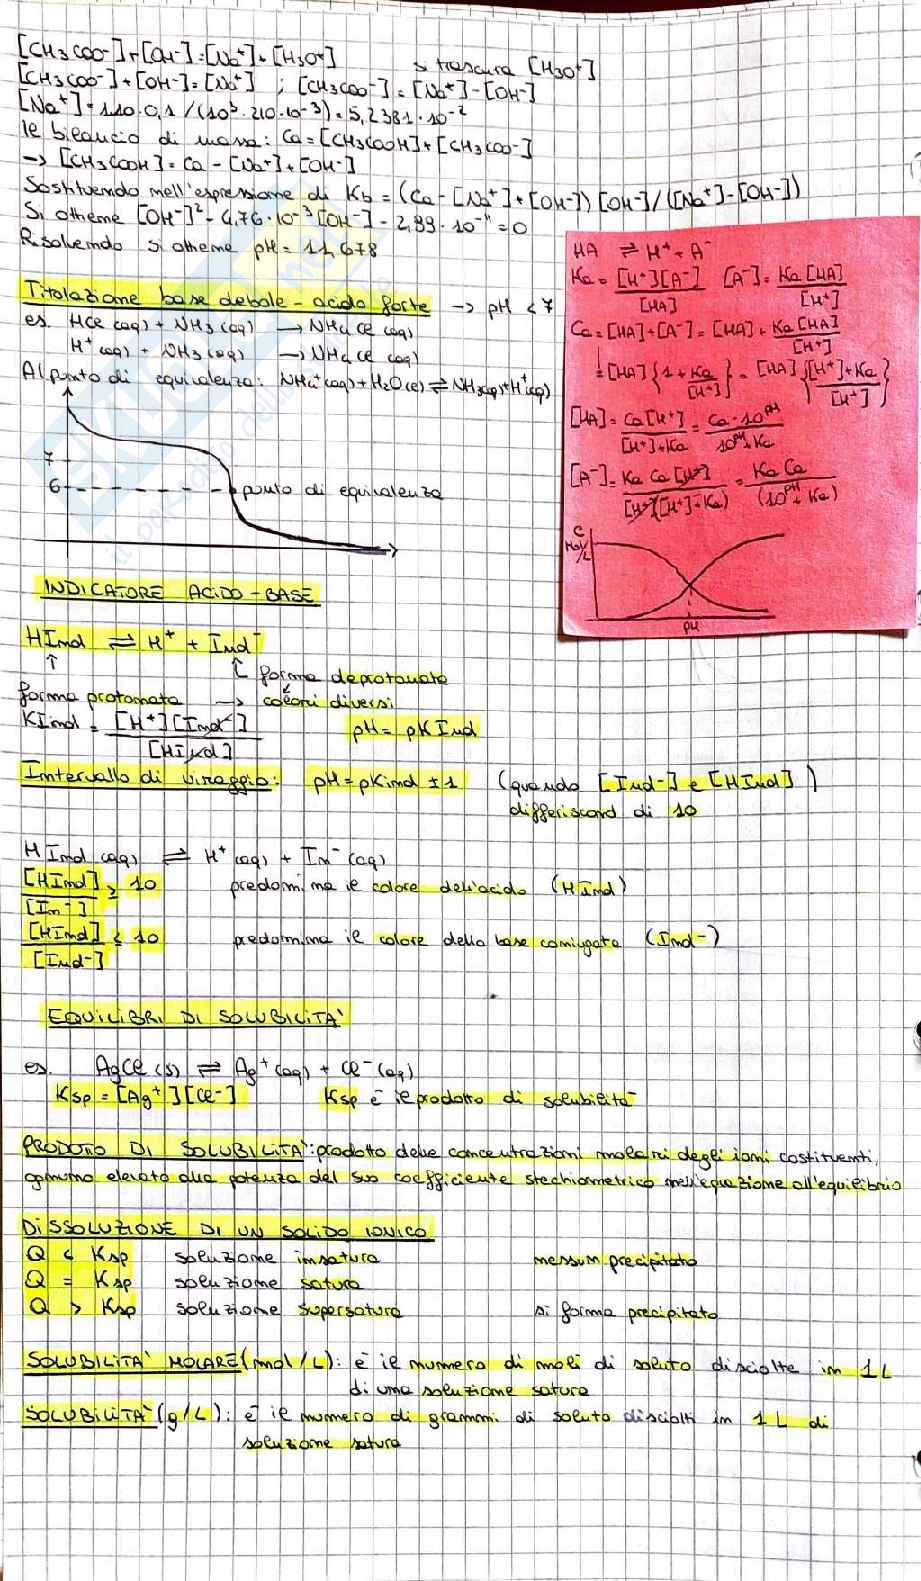 [CH3COO-]+[OH-]=[Na+]+[H3O+] → trascura [H3O+]
[CH3COO-]+[OH-]=[Na+] ; [CH3COO-]=[Na+]-[OH-]
[Na+]=110·0,1/(10³·210·10-³)=5,2381·10-²
Il bilancio di massa: Ca=[CH3COOH]+[CH3COO-]
→ [CH3COOH]=Ca-[Na+]+[OH-]
Sostituendo nell'espressione di Kb=(Ca-[Na+]+[OH-])[OH-]/([Na+]-[OH-])
Si ottiene [OH-]²-4,76·10-³[OH-]-2,99·10-¹¹=0
Risolvendo si ottiene pH=11,678
Titolazione base debole - acido forte → pH < 7
es. HCl (aq) + NH3 (aq) → NH4Cl (aq)
H+ (aq) + NH3 (aq) → NH4Cl (aq)
Al punto di equivalenza: NH4+(aq)+H2O(l) ⇌ NH3(aq)+H+(aq)
7
6
punto di equivalenza
HA ⇌ H+ + A-
Ka = [H+][A-]/[HA] [A-] = Ka[HA]/[H+]
Ca = [HA]+[A-] = [HA]+Ka[HA]/[H+]
= [HA]{1+Ka/[H+]} = [HA]{[H+]+Ka/[H+]}
[HA] = Ca[H+]/[H+]+Ka = Ca·10pH/10pH+Ka
[A-] = Ka Ca[H+]/[H+]([H+]+Ka) = Ka Ca/(10pH+Ka)
C
Mol/L
pH
INDICATORE ACIDO-BASE
HInd ⇌ H+ + Ind-
↑ ↑ forma deprotonata
forma protonata → colori diversi
KInd = [H+][Ind-]/[HInd] pH = pKInd
Intervallo di viraggio: pH=pKind ±1 (quando [Ind-] e [HInd])
differiscono di 10
HInd (aq) ⇌ H+ (aq) + In- (aq)
[HInd]/[In-] ≥ 10 predomina il colore dell'acido (HInd)
[HInd]/[Ind-] ≤ 10 predomina il colore della base coniugata (Ind-)
EQUILIBRI DI SOLUBILITA'
es. AgCl (s) ⇌ Ag+ (aq) + Cl- (aq)
Ksp = [Ag+][Cl-] Ksp è il prodotto di solubilità
PRODOTTO DI SOLUBILITA': prodotto delle concentrazioni molari degli ioni costituenti,
ognuno elevato alla potenza del suo coefficiente stechiometrico nell'equazione all'equilibrio
DISSOLUZIONE DI UN SOLIDO IONICO
Q < Ksp soluzione insatura nessun precipitato
Q = Ksp soluzione satura
Q > Ksp soluzione supersatura si forma precipitato
SOLUBILITA' MOLARE (mol/L): è il numero di moli di soluto disciolte in 1L
di una soluzione satura
SOLUBILITA' (g/L): è il numero di grammi di soluto disciolti in 1L di
soluzione satura